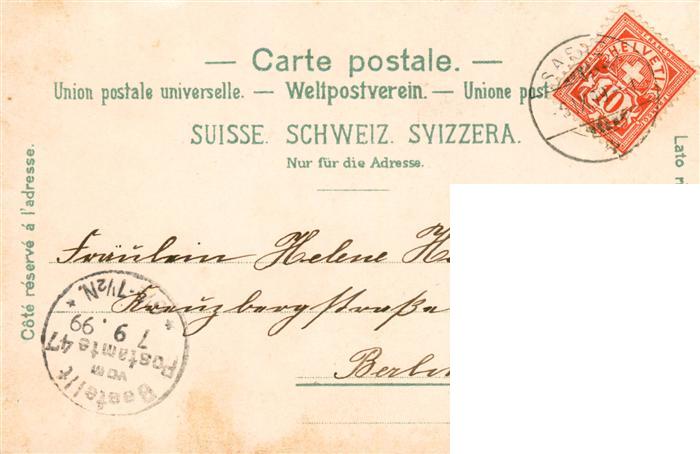 — Carte postale. —
Union postale universelle. — Weltpostverein. — Unione post
SUISSE. SCHWEIZ. SVIZZERA.
Nur für die Adresse.
Côté réservé á l'adresse.
Lato
HELVETIA
10
Fräulein Helene
Kreuzbergstraße
Berlin
Bestellt
vom
Postamte 47
7 9 .99
7½N.